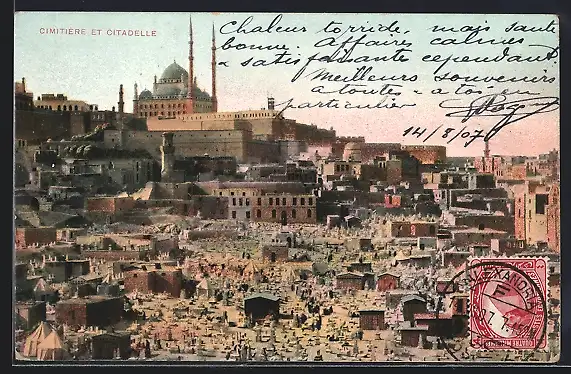 CIMITIÈRE ET CITADELLE
Chaleur torride, mais santé
bonne. Affaires calmes
satisfaisante cependant.
Meilleurs souvenirs
a toutes - a toi en
particulier
14/8/07
ALEXANDRIA